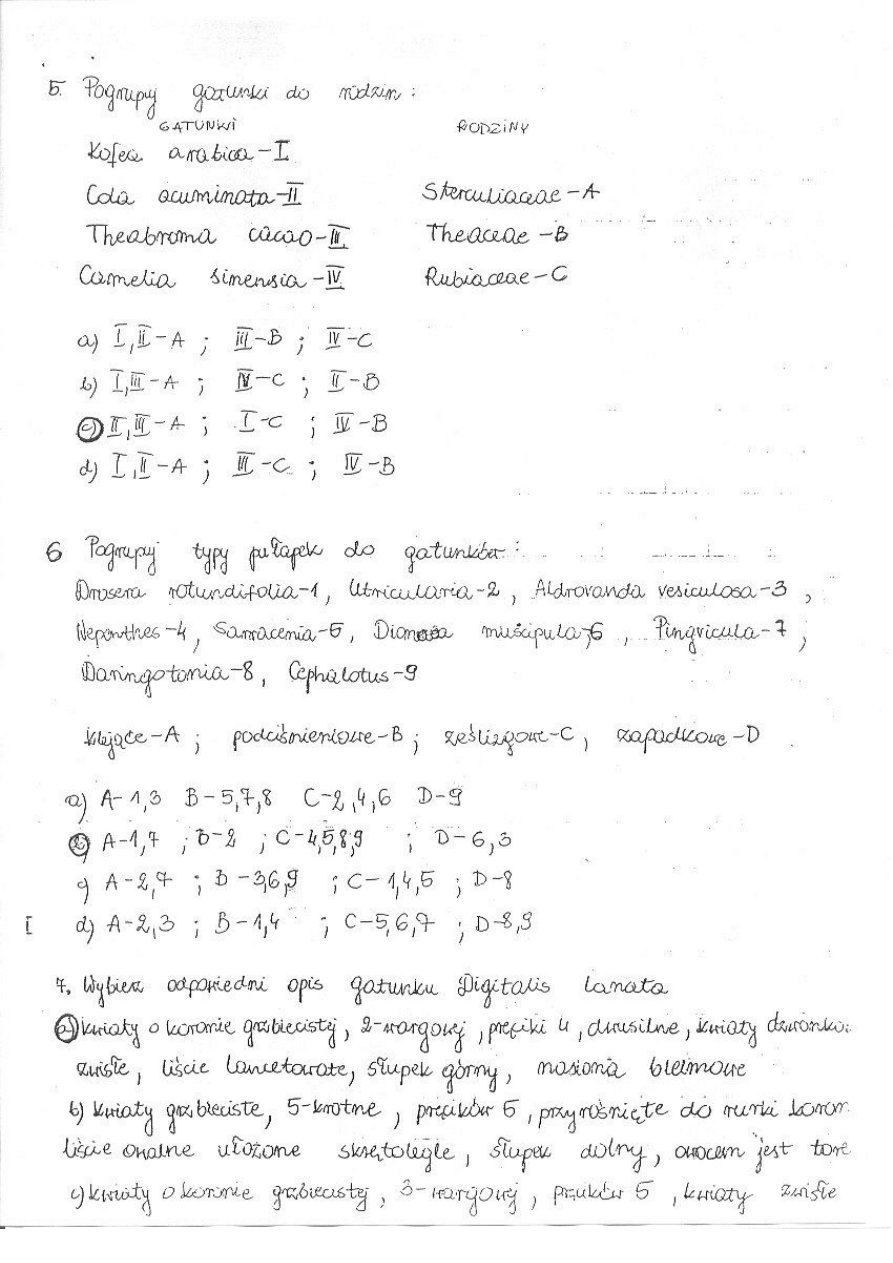 5. Pogrupuj gatunki do rodzin :
GATUNKI RODZINY
Kofea arabica - I
Cola acuminata - II Sterculiaceae - A
Theabroma cacao - III Theaceae - B
Camelia sinensia - IV Rubiaceae - C
a) I, II - A ; III - B ; IV - C
b) I, III - A ; IV - C ; II - B
c) II, III - A ; I - C ; IV - B
d) I, II - A ; III - C ; IV - B
6 Pogrupuj typy pułapek do gatunków :
Drosera rotundifolia - 1, Utricularia - 2, Aldrovanda vesiculosa - 3,
Nepenthes - 4, Sarracenia - 5, Dionaea muscipula - 6, Pingvicula - 7,
Daringotonia - 8, Cephalotus - 9
klejące - A ; podciśnieniowe - B ; ześlizgowe - C, zapadkowe - D
a) A - 1,3 B - 5,7,8 C - 2,4,6 D - 9
b) A - 1,7 ; B - 2 ; C - 4,5,8,9 ; D - 6,3
c) A - 2,7 ; B - 3,6,9 ; C - 1,4,5 ; D - 8
[ d) A - 2,3 ; B - 1,4 ; C - 5,6,7 ; D - 8,9
7. Wybierz odpowiedni opis gatunku Digitalis lanata
a) kwiaty o koronie grzbiecistej, 2-wargowej, pręciki 4, dwusilne, kwiaty dzwonko.
zwisłe, liście lancetowate, słupek górny, nasiona bielmowe
b) kwiaty grzbieciste, 5-krotne, pręcików 5, przyrośnięte do rurki koron
liście owalne ułożone skrętolegle, słupek dolny, owocem jest tore
c) kwiaty o koronie grzbiecistej, 3-wargowej, pręcików 5, kwiaty zwisłe